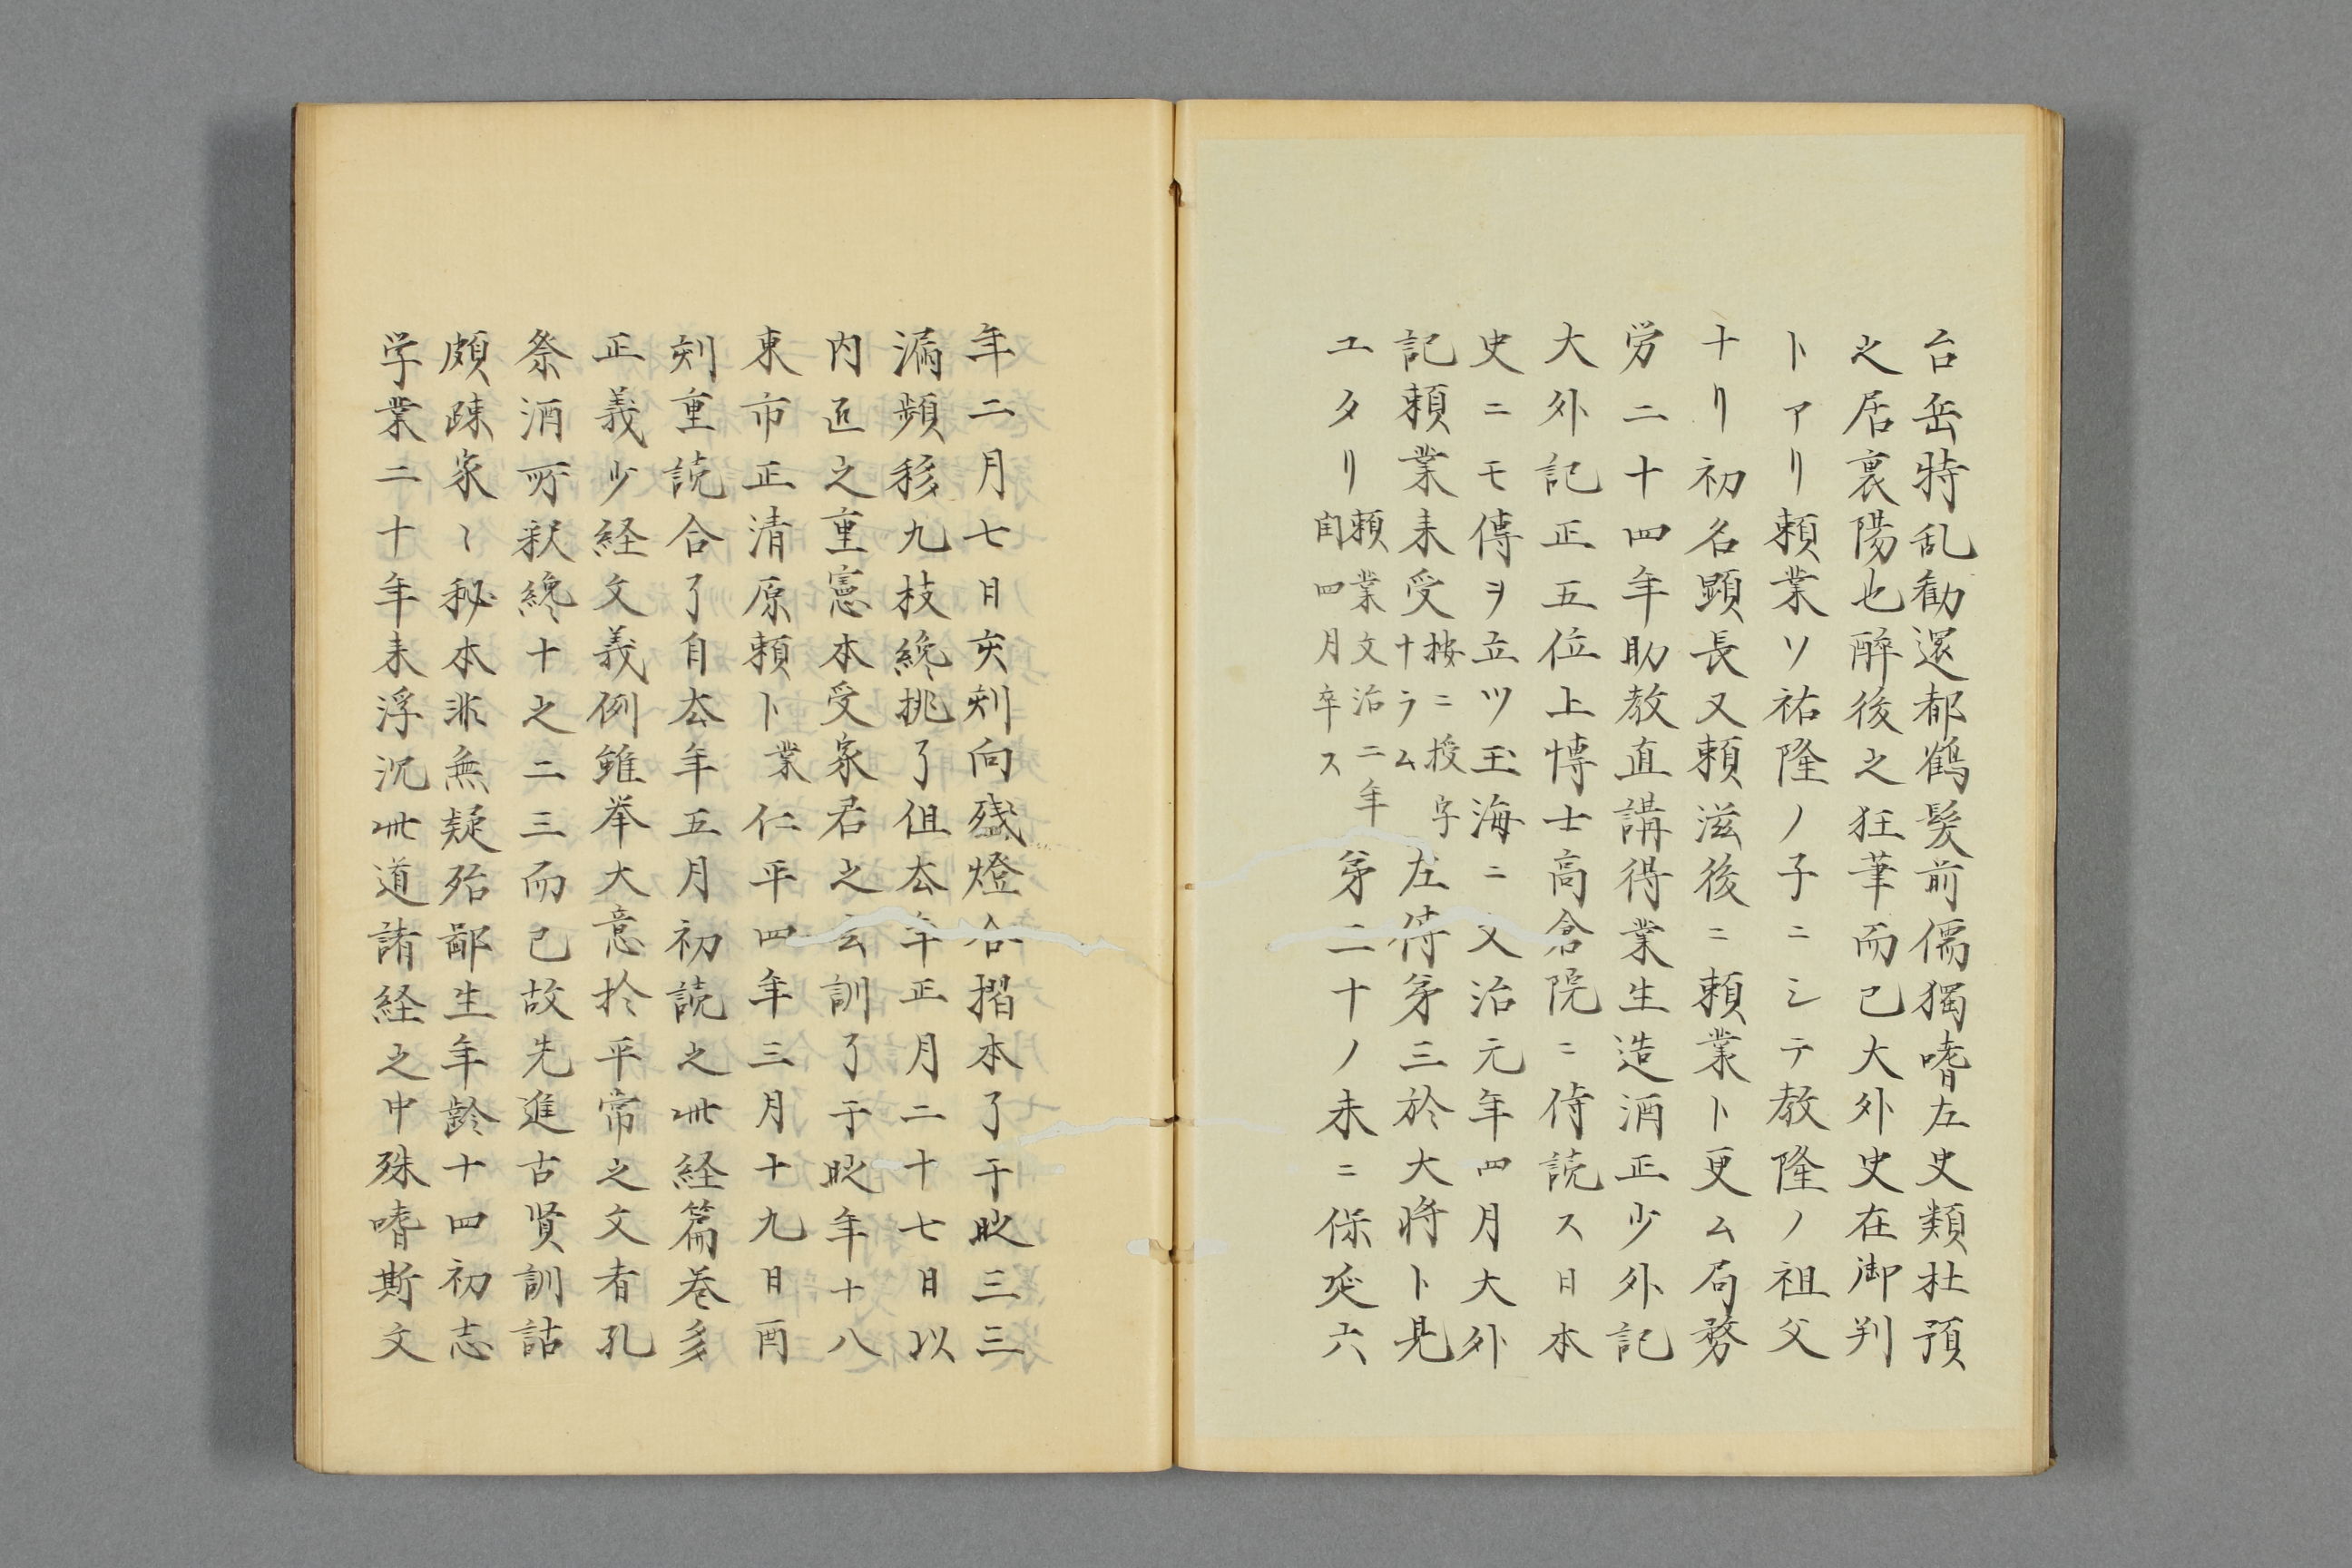 台岳特乱勧還都鶴髪前儒獨嗜左史類杜預
之居裏陽也醉後之狂筆而已大外史在御判
トアリ頼業ソ祐隆ノ子ニシテ教隆ノ祖父
ナリ初名顕長又頼滋後ニ頼業ト更ム局務
労二十四年助教直講得業生造酒正少外記
大外記正五位上博士高倉院ニ侍読ス日本
史ニモ傳ヲ立ツ玉海ニ文治元年四月大外
記頼業来受按ニ授字
ナラム左传第三於大将ト見
ユタリ頼業文治二年
閏四月卒ス第二十ノ末ニ保延六
年二月七日亥刻向残燈合摺本了于時三三
漏頻移九枝纔挑了但去年正月二十七日以
内匠之重憲本受家君之玄訓了于時年十八
東市正清原頼ト業仁平四年三月十九日酉
刻重読合了自去年五月初読之此経篇巻多
正義少経文義例雖挙大意於平常之文者孔
祭酒所釈纔十之二三而已故先進古賢訓詁
頗疎家〻秘本非無疑殆鄙生年齢十四初志
学業二十年来浮沉此道諸経之中殊嗜斯文